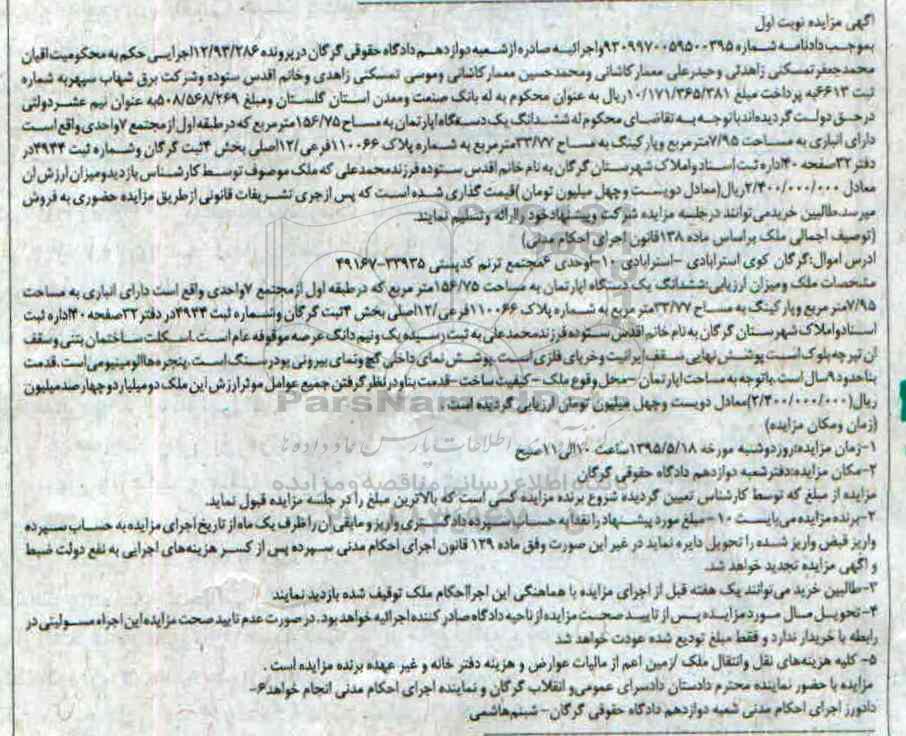 آگهی مزایده نوبت اول
بموجب دادنامه شماره ۹۳۰۹۹۷۰۰۵۹۵۰۰۳۹۵ واجرائیه صادره از شعبه دوازدهم دادگاه حقوقی گرگان در پرونده ۱۲/۹۳/۲۸۶ اجرایی حکم به محکومیت اقیان
محمدجعفر تمسکنی زاهدئی وحیدرعلی معمارکاشانی ومحمدحسین معمارکاشانی وموسی تمسکنی زاهدی وخانم اقدس ستوده وشرکت برق شهاب سپهر به شماره
ثبت ۶۶۱۳به پرداخت مبلغ ۱۰/۱۷۱/۳۶۵/۳۸۱ریال به عنوان محکوم به له بانک صنعت ومعدن استان گلستان ومبلغ ۵۰۸/۵۶۸/۲۶۹به عنوان نیم عشردولتی
درحق دولت گردیده‌اند باتوجه به تقاضای محکوم له ششدانگ یک دستگاه اپارتمان به مساح ۱۵۶/۷۵مترمربع که درطبقه اول ازمجتمع ۷واحدی واقع است
دارای انباری به مساحت ۷/۹۵متر مربع وپارکینگ به مساح ۳۳/۷۷مترمربع به شماره پلاک ۱۱۰۰۶۶فرعی/۱۲اصلی بخش ۴ثبت گرگان وشماره ثبت ۳۹۴۴در
دفتر ۳۲صفحه ۴۰اداره ثبت اسناد واملاک شهرستان گرگان به نام خانم اقدس ستوده فرزند محمدعلی که ملک موصوف توسط کارشناس بازدید ومیزان ارزش ان
معادل ۲/۴۰۰/۰۰۰/۰۰۰ریال(معادل دویست وچهل میلیون تومان )قیمت گذاری شده است که پس ازجری تشریفات قانونی ازطریق مزایده حضوری به فروش
میرسد.طالبین خریدمی‌توانند درجلسه مزایده شرکت وپیشنهادخود راارائه وتسلیم نمایند.
(توصیف اجمالی ملک براساس ماده ۱۳۸قانون اجرای احکام مدنی)
ادرس اموال:گرگان کوی استرابادی -استرابادی ۱۰-اوحدی ۶مجتمع ترنم کدپستی ۳۳۹۳۵-۴۹۱۶۷
مشخصات ملک ومیزان ارزیابی:ششدانگ یک دستگاه اپارتمان به مساحت ۱۵۶/۷۵متر مربع که درطبقه اول ازمجتمع ۷واحدی واقع است دارای انباری به مساحت
۷/۹۵متر مربع وپارکینگ به مساح ۳۳/۷۷متر مربع به شماره پلاک ۱۱۰۰۶۶فرعی/۱۲اصلی بخش ۴ثبت گرگان وشماره ثبت ۳۹۴۴در دفتر ۳۲صفحه ۴۰اداره ثبت
اسنادواملاک شهرستان گرگان به نام خانم اقدس ستوده فرزندمحمدعلی به ثبت رسیده یک ونیم دانگ عرصه موقوفه عام است.اسکلت ساختمان بتنی وسقف
ان تیرچه بلوک است پوشش نهایی سقف ایرانیت وخرپای فلزی است.پوشش نمای داخلی گچ ونمای بیرونی پودرسنگ است.پنجره‌هاالومینیومی است.قدمت
بناحدود ۹سال است.باتوجه به مساحت اپارتمان -محل وقوع ملک-کیفیت ساخت-قدمت بناودرنظرگرفتن جمیع عوامل موثرارزش این ملک دومیلیارد وچهارصدمیلیون
ریال(۲/۴۰۰/۰۰۰/۰۰۰)معادل دویست وچهل میلیون تومان ارزیابی گردیده است .
(زمان ومکان مزایده)
۱-زمان مزایده:روزدوشنبه مورخه ۱۳۹۵/۵/۱۸ساعت ۱۰الی ۱۱صبح
۲-مکان مزایده:دفترشعبه دوازدهم دادگاه حقوقی گرگان
مزایده از مبلغ که توسط کارشناس تعیین گردیده شروع برنده مزایده کسی است که بالاترین مبلغ را در جلسه مزایده قبول نماید.
۲-برنده مزایده می‌بایست ۱۰-مبلغ مورد پیشنهاد را نقدا به حساب سپرده دادگستری واریز و مابقی ان را ظرف یک ماه از تاریخ اجرای مزایده به حساب سپرده
واریز قبض واریز شده را تحویل دایره نماید در غیر این صورت وفق ماده ۱۲۹ قانون اجرای احکام مدنی سپرده پس از کسر هزینه‌های اجرایی به نفع دولت ضبط
و اگهی مزایده تجدید خواهد شد.
۳-طالبین خرید می‌توانند یک هفته قبل از اجرای مزایده با هماهنگی این اجرااحکام ملک توقیف شده بازدید نمایند
۴-تحویل مال مورد مزایده پس از تایید صحت مزایده از ناحیه دادگاه صادر کننده اجرائیه خواهد بود . در صورت عدم تایید صحت مزایده این اجراء مسولیتی در
رابطه با خریدار ندارد و فقط مبلغ تودیع شده عودت خواهد شد
۵- کلیه هزینه‌های نقل وانتقال ملک ازمین اعم از مالیات عوارض و هزینه دفتر خانه و غیر عهده برنده مزایده است .
مزایده با حضور نماینده محترم دادستان دادسرای عمومی‌و انقلاب گرگان و نماینده اجرای احکام مدنی انجام خواهد۶-
دادورز اجرای احکام مدنی شعبه دوازدهم دادگاه حقوقی گرگان- شبنم‌هاشمی